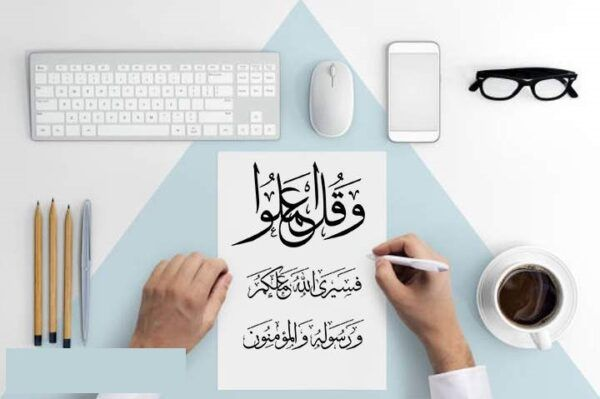 وَقُلِ اعْمَلُوا
فَسَيَرَى اللهُ عَمَلَكُمْ
وَرَسُولُهُ وَالْمُؤْمِنُونَ